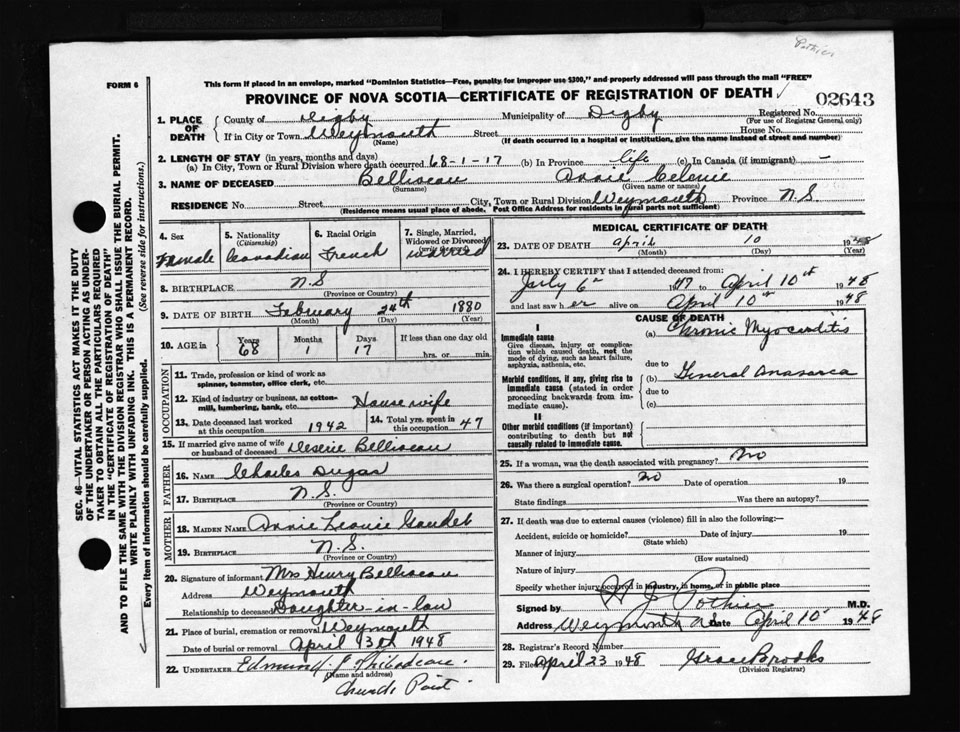 Pothier
FORM 6
This form if placed in an envelope, marked "Dominion Statistics—Free, penalty for improper use $300," and properly addressed will pass through the mail "FREE"
PROVINCE OF NOVA SCOTIA—CERTIFICATE OF REGISTRATION OF DEATH
02643
Registered No.
(For use of Registrar General only)
1. PLACE OF DEATH
County of Digby Municipality of Digby
If in City or Town Weymouth Street House No.
(Name) (If death occurred in a hospital or institution, give the name instead of street and number)
2. LENGTH OF STAY (in years, months and days)
(a) In City, Town or Rural Division where death occurred 68-1-17 (b) In Province life (c) In Canada (if immigrant) –
3. NAME OF DECEASED Belliveau Annie Celenie
(Surname) (Given name or names)
RESIDENCE No. Street City, Town or Rural Division Weymouth Province N.S.
(Residence means usual place of abode. Post Office Address for residents in rural parts not sufficient)
4. Sex
Female
5. Nationality
(Citizenship)
Canadian
6. Racial Origin
French
7. Single, Married, Widowed or Divorced
(write the word)
Married
8. BIRTHPLACE N.S
(Province or Country)
9. DATE OF BIRTH February 24th 1880
(Month) (Day) (Year)
10. AGE in Years Months Days If less than one day old
68 1 17 hrs. or min.
OCCUPATION
11. Trade, profession or kind of work as
spinner, teamster, office clerk, etc.
12. Kind of industry or business, as cotton-
mill, lumbering, bank, etc. House wife
13. Date deceased last worked at this occupation 1942
14. Total yrs. spent in this occupation 47
15. If married give name of wife
or husband of deceased Deserie Belliveau
FATHER
16. NAME Charles Dugas
17. BIRTHPLACE N.S.
(Province or Country)
MOTHER
18. MAIDEN NAME Annie Leonie Gaudet
19. BIRTHPLACE N.S.
(Province or Country)
20. Signature of informant Mrs Henry Belliveau
Address Weymouth
Relationship to deceased Daughter-in-law
21. Place of burial, cremation or removal Weymouth
Date of burial or removal April 13th 1948
22. UNDERTAKER Edmund P Thibodeau.
(Name and address)
Church Point.
MEDICAL CERTIFICATE OF DEATH
23. DATE OF DEATH April 10 1948
(Month) (Day) (Year)
24. I HEREBY CERTIFY that I attended deceased from:
July 6th 1947 to April 10th 1948
and last saw her alive on April 10th 1948
CAUSE OF DEATH
I
Immediate cause (a) Chronic Myocarditis
Give disease, injury or complication which caused death, not the mode of dying, such as heart failure, asphyxia, asthenia, etc.
due to
Morbid conditions, if any, giving rise to immediate cause (stated in order proceeding backwards from immediate cause).
(b) General Anasarca
due to
(c)
II
Other morbid conditions (if important) contributing to death but not causally related to immediate cause.
25. If a woman, was the death associated with pregnancy? No
26. Was there a surgical operation? No Date of operation 19
State findings Was there an autopsy?
27. If death was due to external causes (violence) fill in also the following:—
Accident, suicide or homicide? Date of injury 19
(State which)
Manner of injury
(How sustained)
Nature of injury
Specify whether injury occurred in industry, in home, or in public place
Signed by Pothier M.D.
Address Weymouth NS Date April 10 1948
28. Registrar's Record Number
29. Filed April 23 1948 Grace Brooks
(Division Registrar)
SEC. 46—VITAL STATISTICS ACT MAKES IT THE DUTY
OF THE UNDERTAKER OR PERSON ACTING AS UNDER-
TAKER TO OBTAIN ALL THE PARTICULARS REQUIRED
IN THE "CERTIFICATE OF REGISTRATION OF DEATH"
AND TO FILE THE SAME WITH THE DIVISION REGISTRAR WHO SHALL ISSUE THE BURIAL PERMIT.
WRITE PLAINLY WITH UNFADING INK. THIS IS A PERMANENT RECORD.
Every item of information should be carefully supplied. (See reverse side for instructions.)